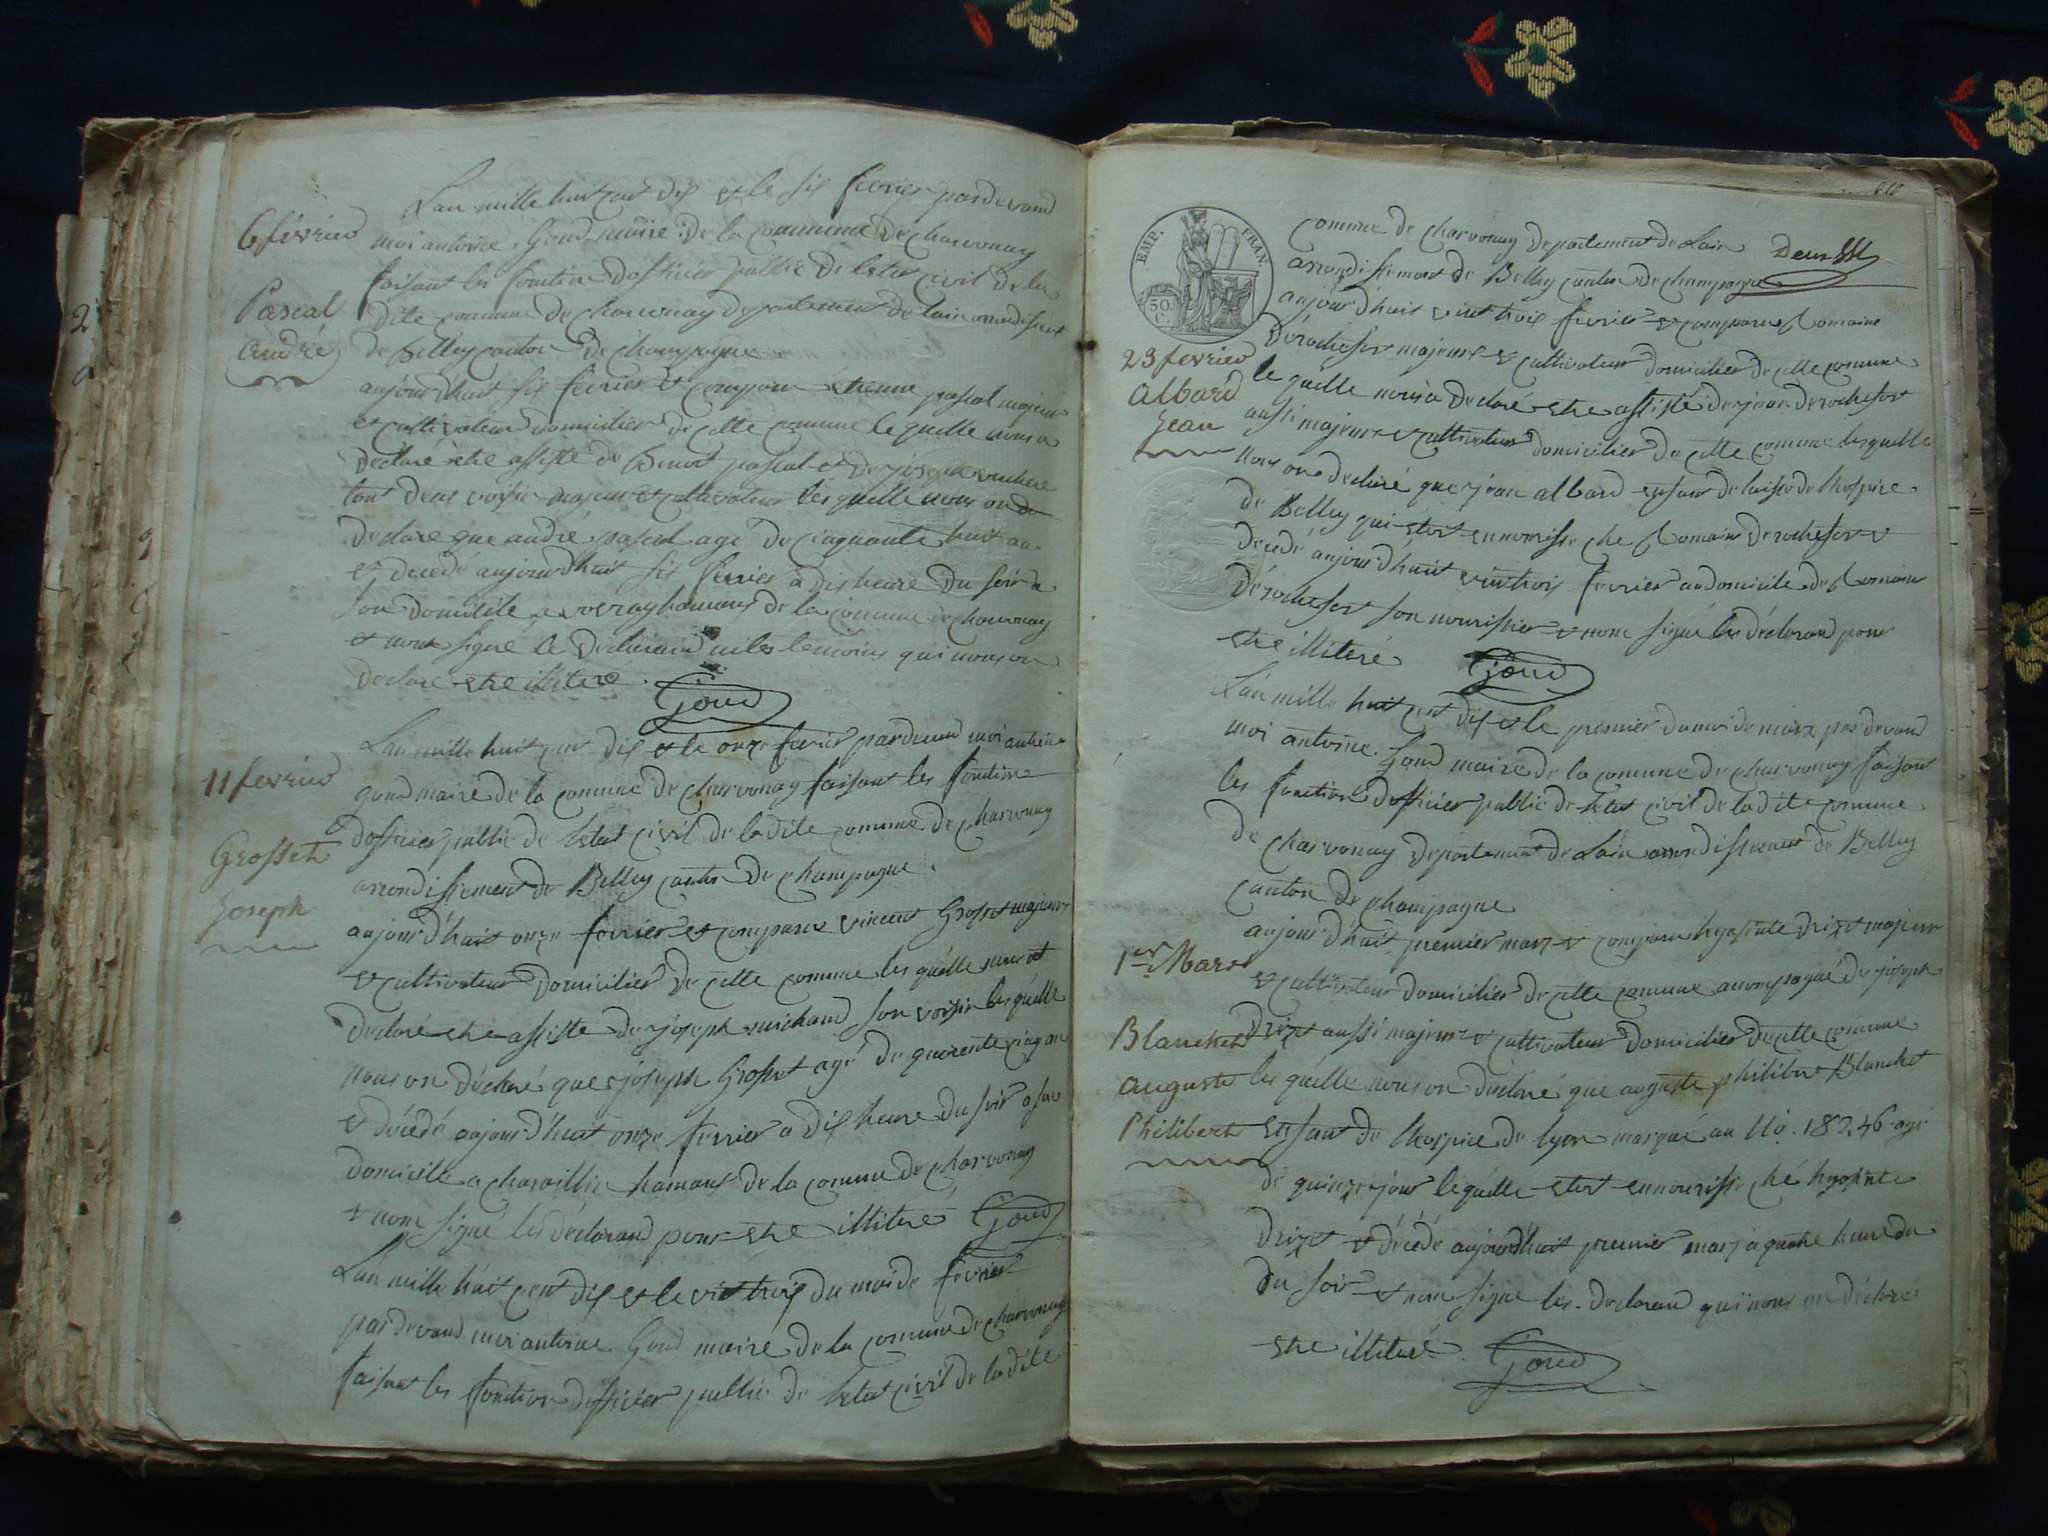 Lan mille huit cent dix et le six fevrier pardevand
6 fevrier
moi antoine Goud maire de la commune de charvonay
faisant les fonction dofficier public de letat civil de la
Pascal
dite commune de charvonay departement de lain arrondissement
andré
de Belley canton de champagne
aujourdhuit six fevrier et comparu etienne pascal majeur
et cultivateur domicilier de cette comune le quelle nous a
declaré etre assisté de Benoit pascal et de joseph
tout deux voisin majeur et cultivateur les quelle nous on
declaré que andré pascal agé de cinquante huit an
et decedé aujourdhuit six fevrier a dix heure du soir a
son domicile a hamaux de la comune de charvonay
et nont signé le declarand ni les temoins qui nous on
declaré etre illiteré. Goud
Lan mille huit cent dix et le onze fevrier pardevand moi antoine
11 fevrier
goud maire de la comune de charvonay faisant les fonction
dofficier public de letat civil de la dite comune de charvonay
Grosset
arrondissement de Belley canton de champagne.
Joseph
aujourdhuit onze fevrier et comparu vincent Grosset majeur
et cultivateur domicilier de cette comune les quelle nous ont
declaré etre assisté de joseph michaud son voisin les quelle
nous on déclaré que joseph Grosset agé de quarente cinq an
et décédé aujourdhuit onze fevrier a dix heure du soir a son
domicille a charaillin hamaux de la comune de charvonay
et nont signé les déclarand pour etre illiteré Goud
Lan mille huit cent dix et le vint trois du moi de fevrier
pardevand moi antoine Goud maire de la comune de charvonay
faisant les fonction dofficier public de letat civil de la dite
EMP. FRAN.
50 c.
comune de charvonay departement de Lain
arrondissement de Belley canton de champagne
aujourdhuit vint trois fevrier et comparu Romain
Derochefort majeur et cultivateur domicilier de cette comune
23 fevrier
le quelle nous a declaré etre assisté de jean derochefort
albard
aussi majeur et cultivateur domicilier de cette comune les quelle
Jean
nous on declaré que jean albard enfant de laissé de lhospice
de Belley qui etet en nourisse ché Romain derochefort et
decedé aujourdhuit vint trois fevrier au domicile de Romain
Dérochefort son nourissier et nont signé les déclarand pour
etre illiteré Goud
Lan mille huit cent dix et le premier du moi de marz par devand
moi antoine Goud maire de la comune de charvonay faisant
les fonction dofficier public de letat civil de la dite comune
de charvonay departement de Lain arrondissement de Belley
canton de champagne
aujourdhuit premier marz et comparu hyasinte drizet majeur
1er Mars
et cultivateur domicilier de cette comune acompagné de joseph
Blanchet
drizet aussi majeur et cultivateur domicilier de cette comune
auguste
les quelle nous on declaré que auguste philibert Blanchet
Philibert
enfant de lhospice de lyon marqué au No. 18246 agé
de quinze jour le quelle etet en nourisse ché hyasinte
drizet et décédé aujourdhuit premier marz a quatre heure du
du soir et nont signé les declarand qui nous on déclaré
etre illiteré. Goud